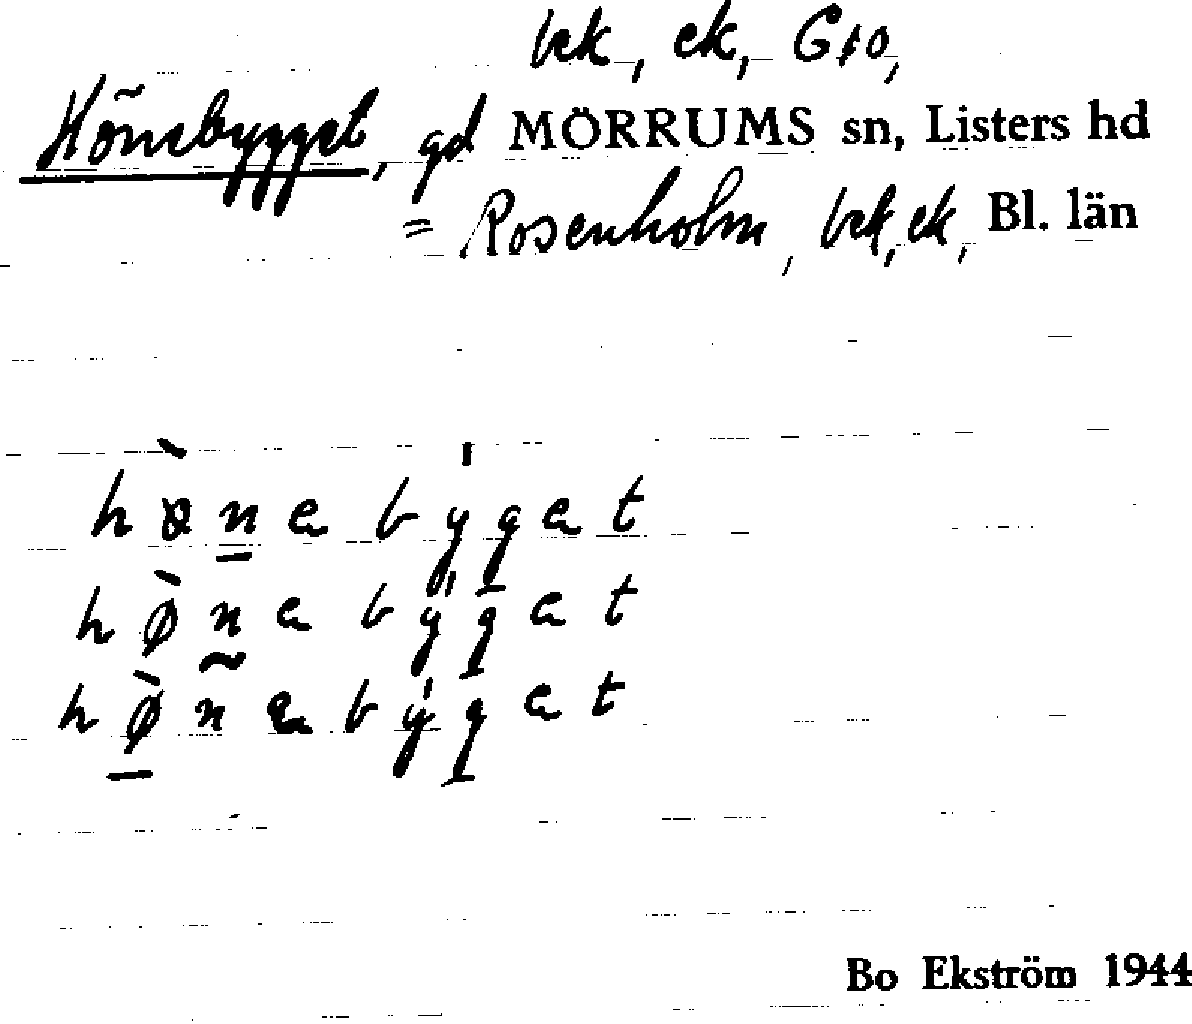 bek, ek, Gto,
Hönebygget, gd MÖRRUMS sn, Listers hd
= Rosenholm, bek, ek, Bl. län
hø̀nabýgat
hø̀nabýgat
hø̀nabýgat
Bo Ekström 1944